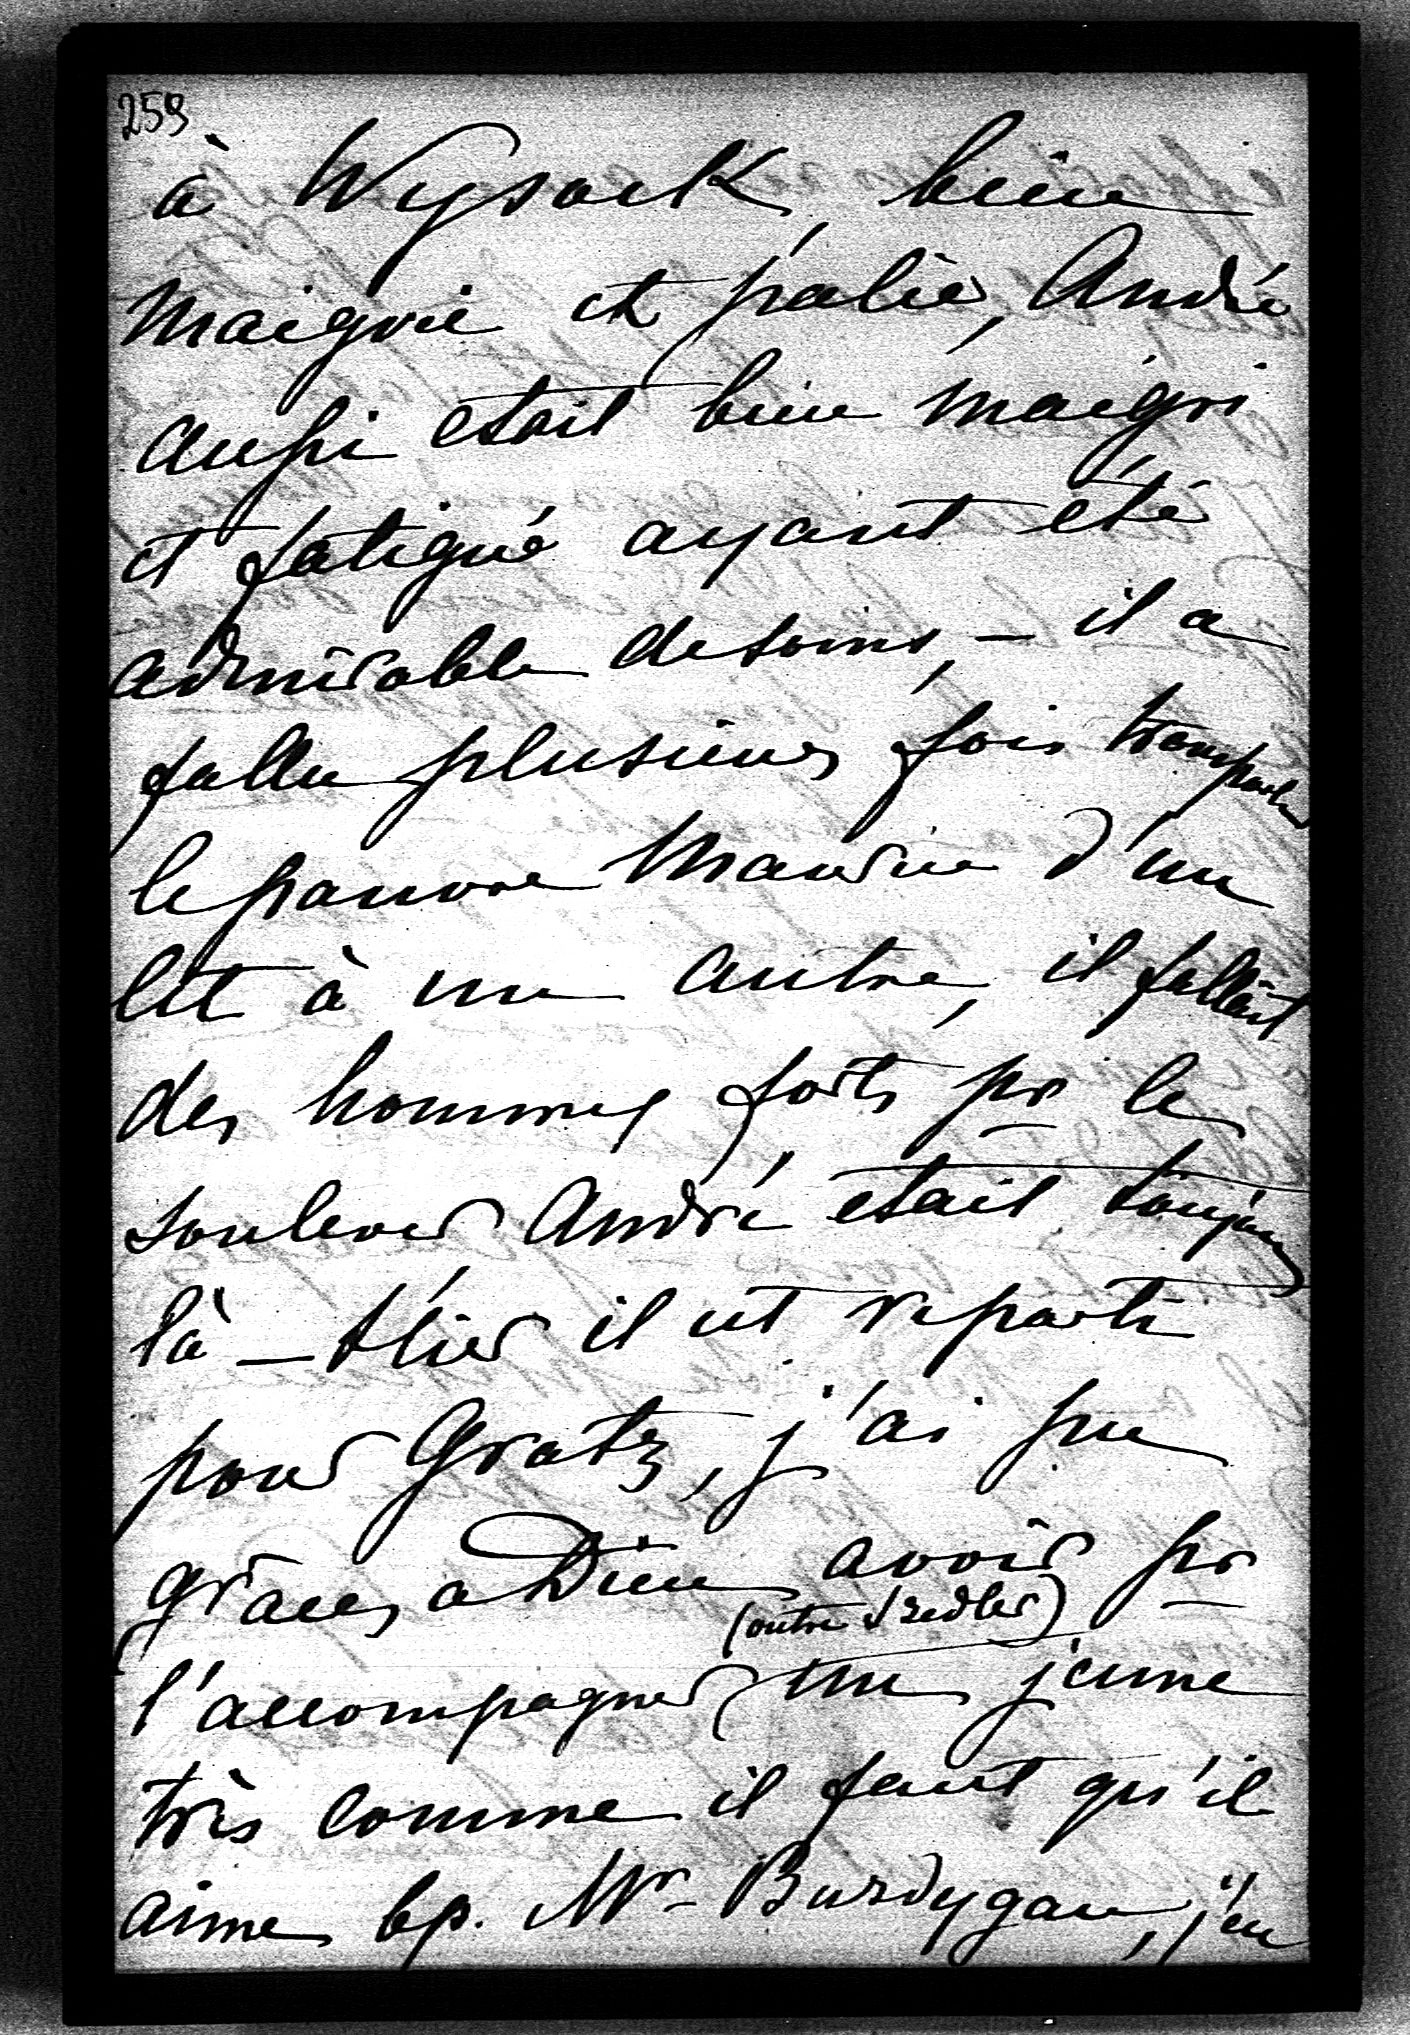 259
à Wysock, bien
maigrie et pâlie, André
aussi etait bien maigri
et fatigué ayant été
admirable de soins, – il a
fallu plusieurs fois transporter
le pauvre Maurice d'un
lit à un autre, il fallait
des hommes forts pr le
soulever André etait toujours
là – Hier il est reparti
pour Gratz, j'ai pu
grâces a Dieu avoir pr
(outre
l'accompagner un jeune
très comme il faut qu'il
aime bp. Mr Burdygan, j'en